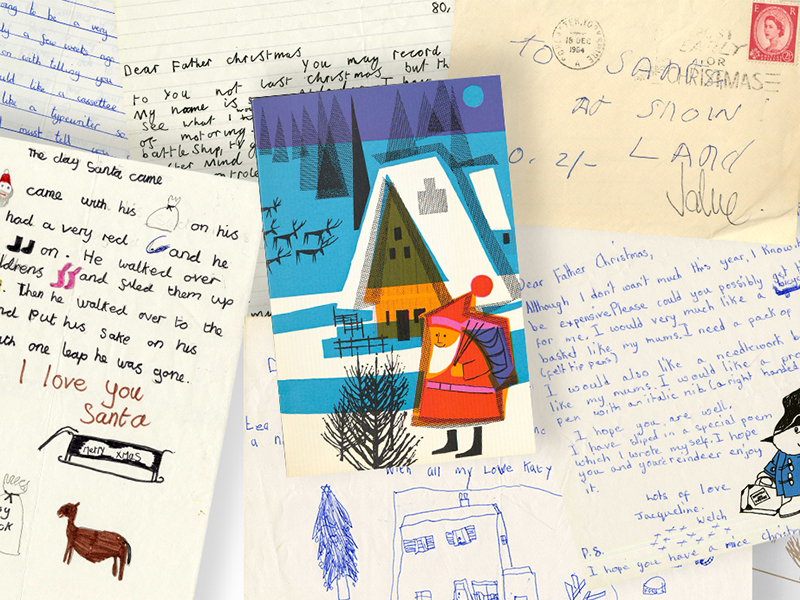 to be a very
only a few weeks ago
on with telling you
would like a cassette
like a typewriter so
must tell you
80,
Dear Father christmas
You may record
to you not last christmas but th
My name is
see what I
of motoring
battleship, tv g
Mind
The day Santa came
came with his on his
had a very red and he
on. He walked over
childrens and filed them up
Then he walked over to the
and Put his Sake on his
with one leap he was gone.
I love you
Santa
merry XMAS
15 DEC
1964
A
POST
EARLY
FOR
CHRISTMAS
TO SANTA
AT SNOW
LAND
0. 2/-
Dear Father Christmas,
Although I don't want much this year, I know it
be expensive. Please could you possibly get
for me, I would very much like a
basket like my mums. I need a pack of
(felt tip pens)
I would also like a needlework b
like my mums. I would like a pro
pen with an italic nib. (a right handed
I hope you are well.
I have sliped in a special poem
which I wrote myself. I hope
you and youre reindeer enjoy
it.
Lots of love
Jacqueline.
Welch
P.S.
I hope you have a nice christm
With all my Love Katy